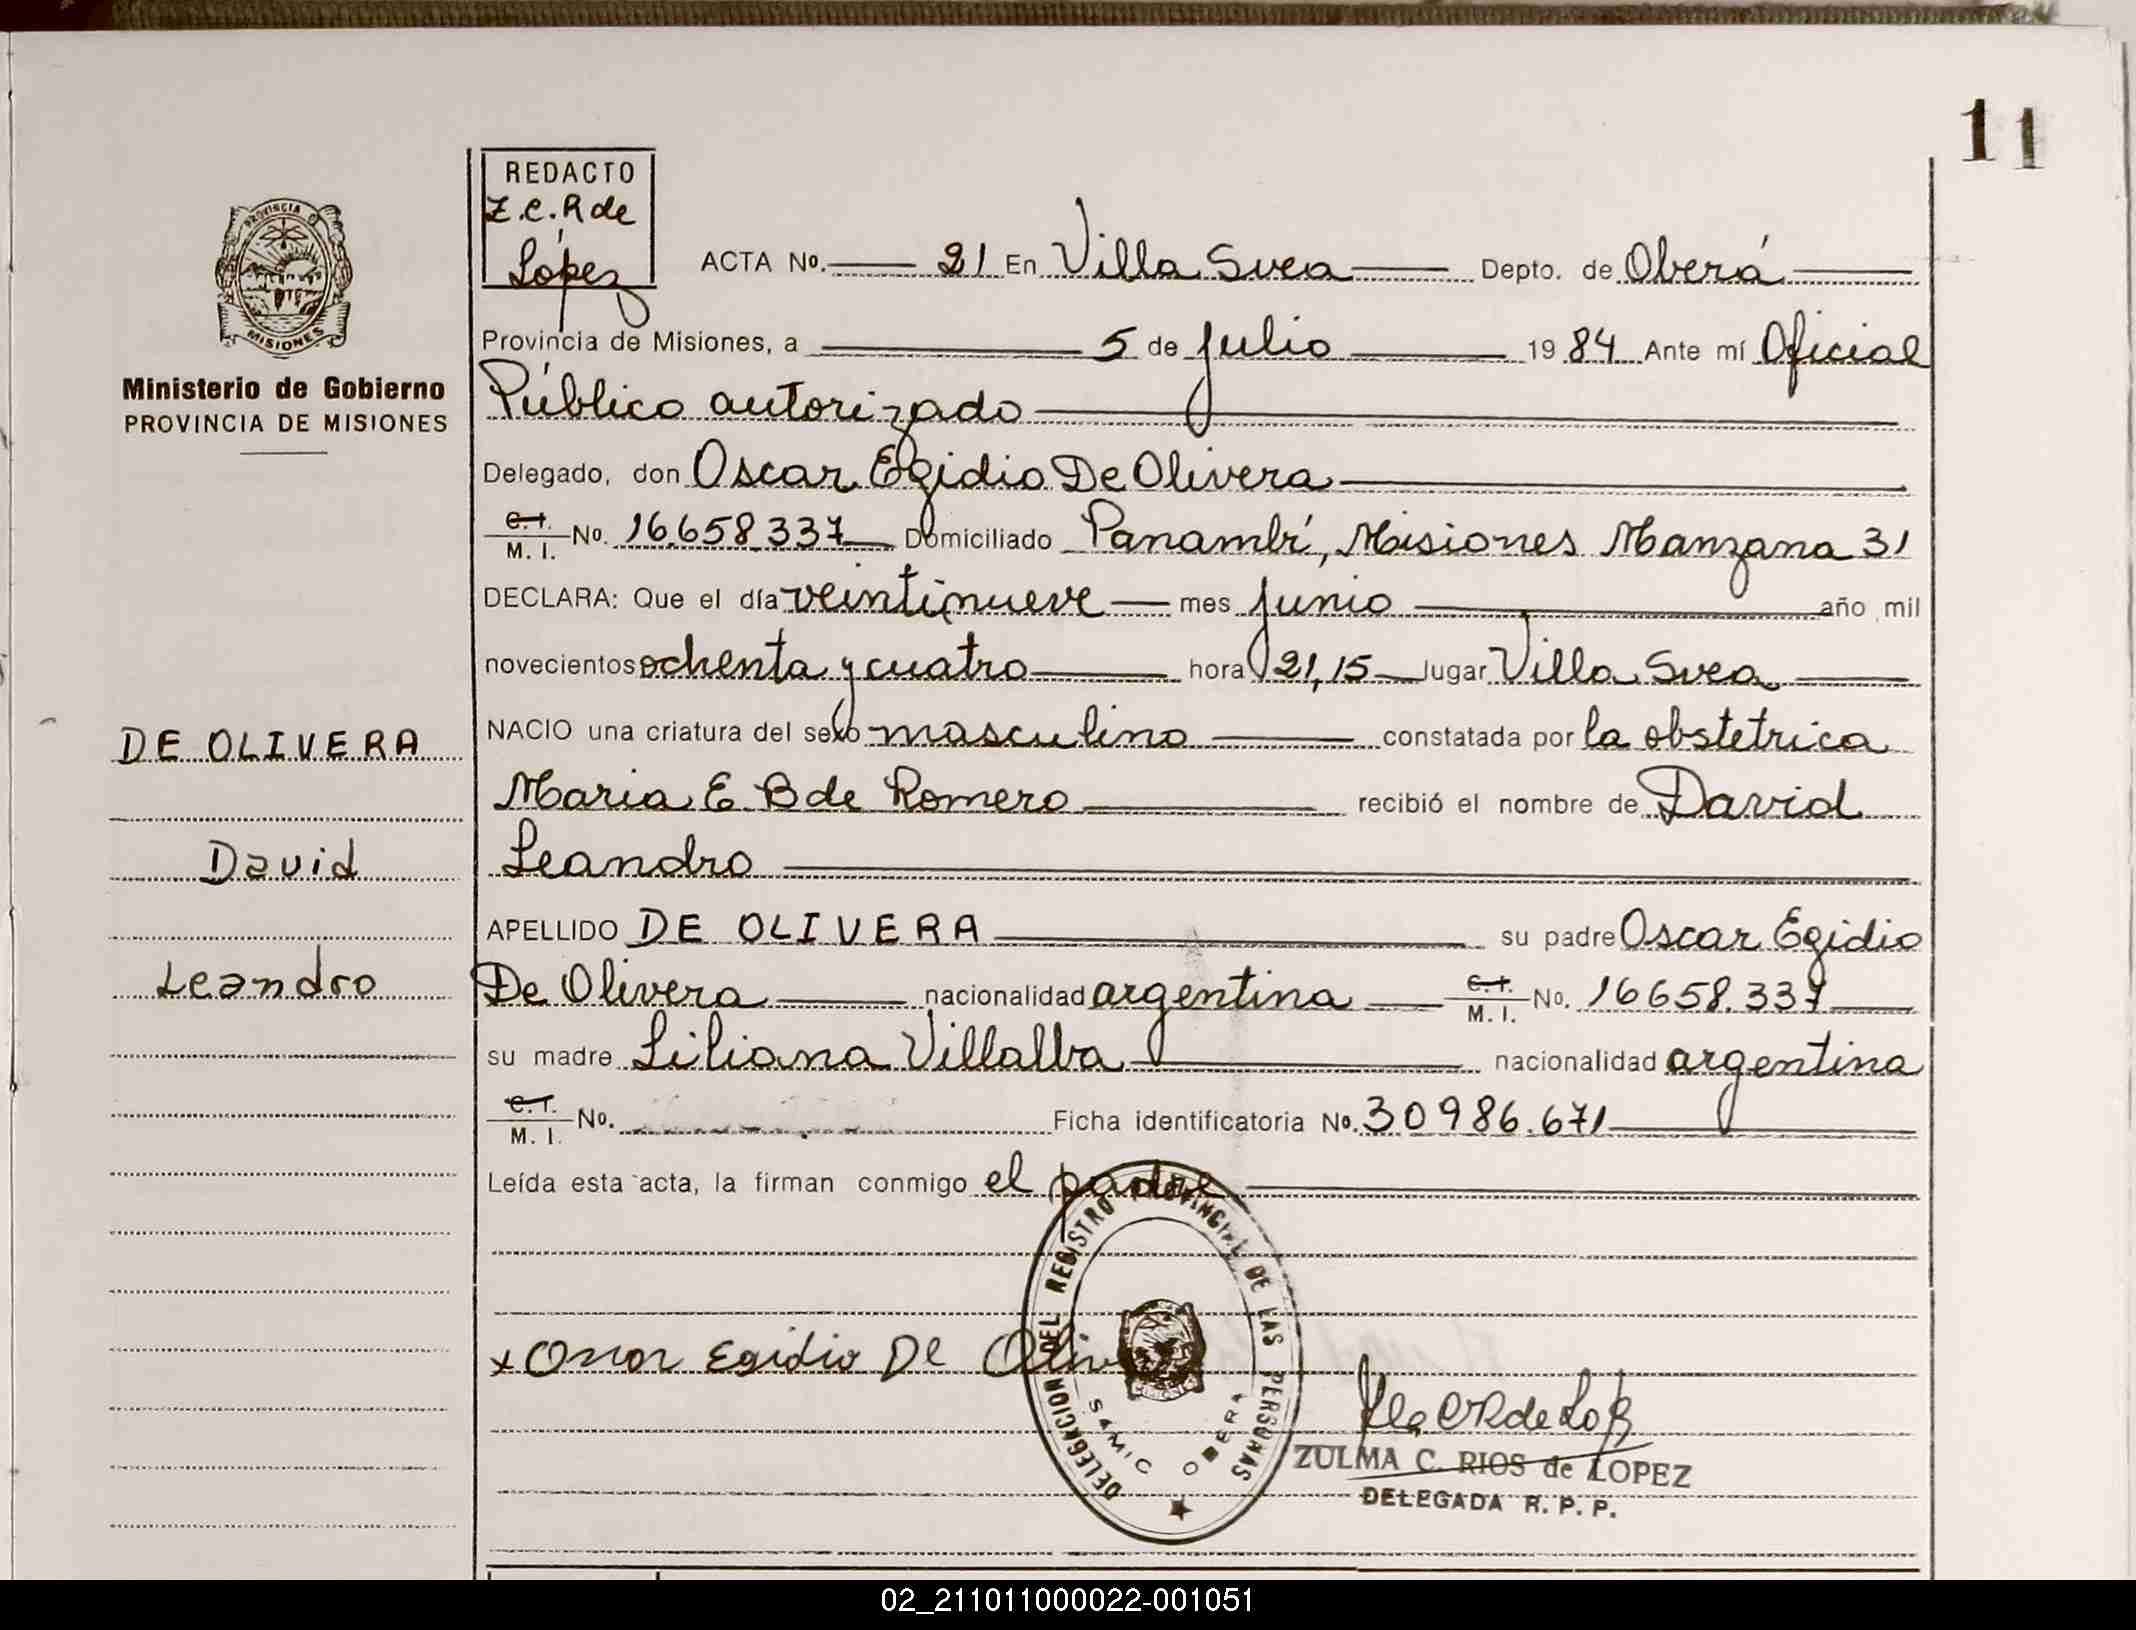 11
REDACTO
Z.C.R de
López
ACTA No. 21 En Villa Svea Depto. de Oberá
Provincia de Misiones, a 5 de julio 1984 Ante mí Oficial
Público autorizado
Delegado, don Oscar Egidio De Olivera
C.I. M.I. No. 16.658.337 Domiciliado Panambí, Misiones Manzana 31
DECLARA: Que el día veintinueve mes junio año mil
novecientos ochenta y cuatro hora 21,15 lugar Villa Svea
NACIO una criatura del sexo masculino constatada por la obstetrica
Maria E B de Romero recibió el nombre de David
Leandro
APELLIDO DE OLIVERA su padre Oscar Egidio
De Olivera nacionalidad argentina C.I. M.I. No. 16658.337
su madre Liliana Villalba nacionalidad argentina
C.I. M.I. No. Ficha identificatoria No. 30986.671
Leída esta acta, la firman conmigo el padre
x Oscar Egidio De
DELEGACION DEL REGISTRO PROVINCIAL DE LAS PERSONAS
SAMIC OBERA
MISIONES
ZULMA C. RIOS de LOPEZ
DELEGADA R. P. P.
PROVINCIA D
MISIONES
Ministerio de Gobierno
PROVINCIA DE MISIONES
DE OLIVERA
David
Leandro
02_211011000022-001051